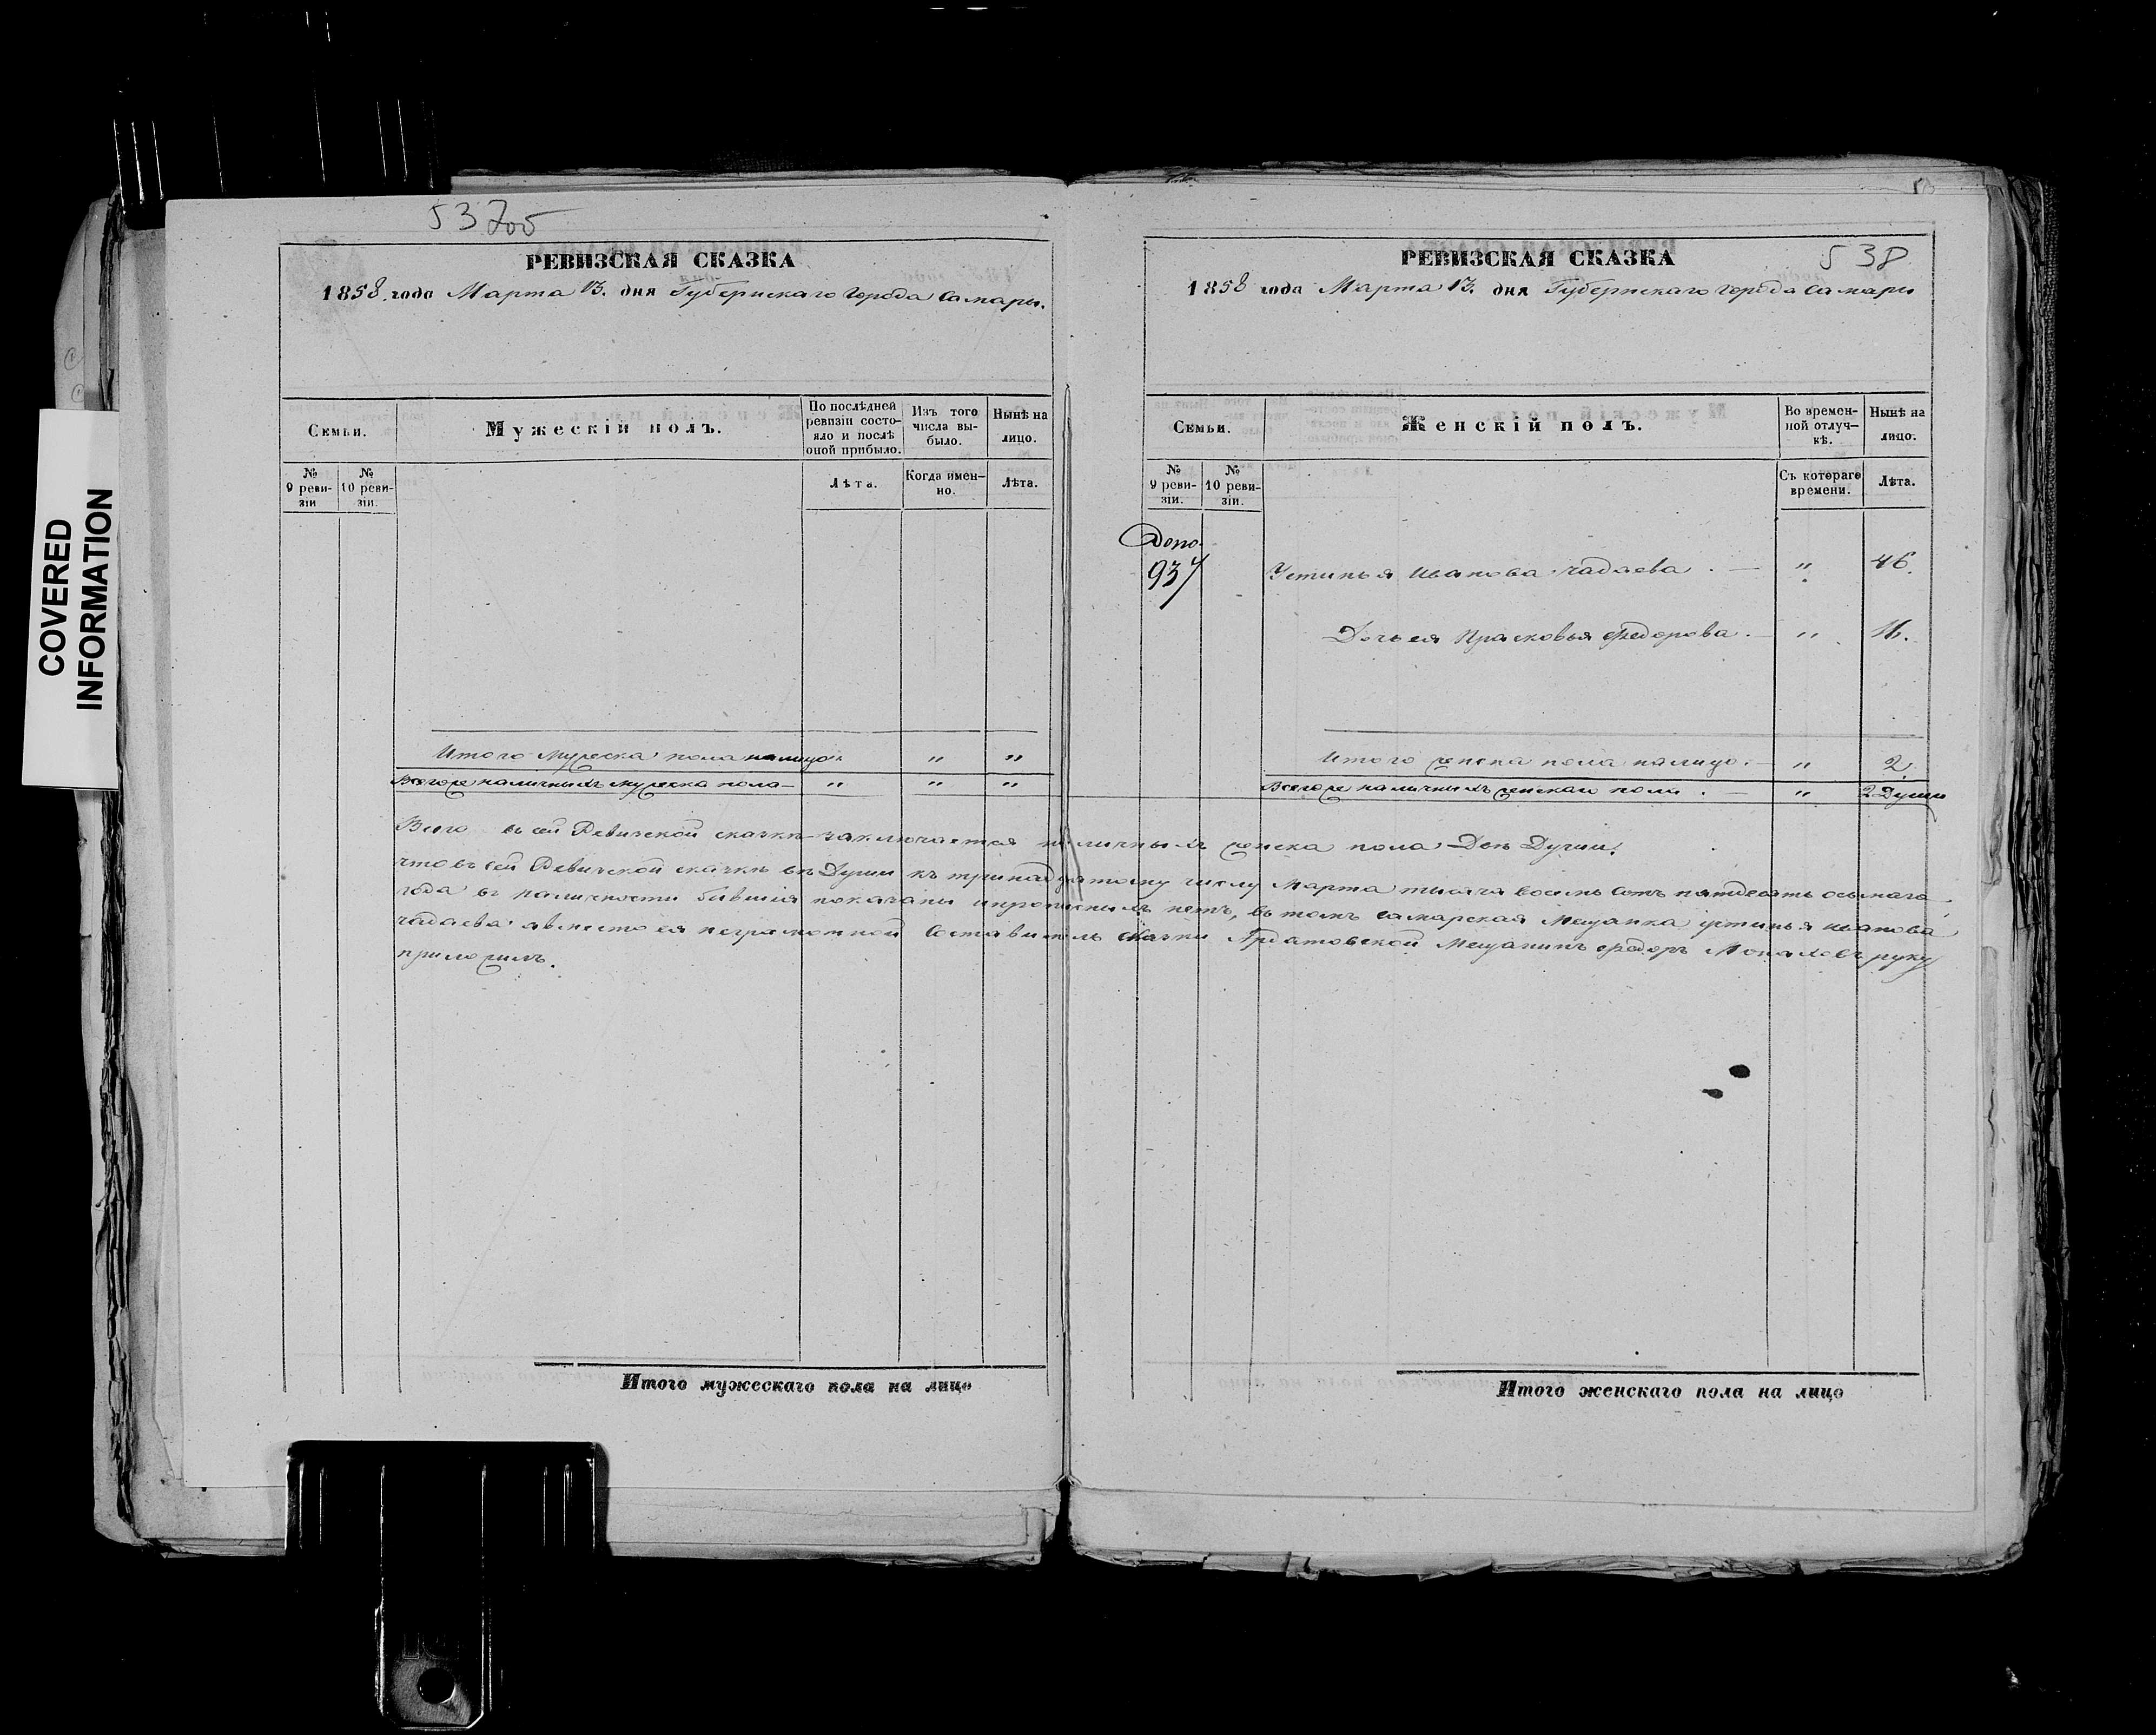 COVERED
INFORMATION
53 об
РЕВИЗСКАЯ СКАЗКА
1858 года Марта 13. дня Губернскаго города Самары.
Семьи.
Мужескій полъ.
По послѣдней ревизіи состояло и послѣ оной прибыло.
Изъ того числа выбыло.
Нынѣ на лицо.
№ 9 ревизіи
№ 10 ревизіи.
Лѣта.
Когда именно.
Лѣта.
Итого мужеска пола налицо " "
Всего же наличныхъ мужеска пола — " " "
538
РЕВИЗСКАЯ СКАЗКА
1858 года Марта 13. дня Губернскаго города Самары
Семьи.
Женскій полъ.
Во временной отлучкѣ.
Нынѣ на лицо.
№ 9 ревизіи.
№ 10 ревизіи.
Съ котораго времени.
Лѣта.
Допо.
937 Устинья Иванова Чадаева . — " 46.
Дочь ея Прасковья Федорова . — " 16.
Итого женска пола налицо . — " 2
Всего же наличныхъ женскаго пола . — " 2 Души
Всего въ сей Ревизской сказкѣ заключается наличныхъ женска пола Двѣ Души.
что въ сей Ревизской сказкѣ всѣ Души къ тринадцатому числу Марта тысяча восемь сотъ пятдесятъ осьмаго
года въ наличности бывшія показаны и прописныхъ нетъ, въ томъ самарская Мещанка Устинья Иванова
Чадаева а вместо ея неграмотной Составитель сказки Ардатовской Мещанинъ Федоръ руку
приложилъ.
Итого мужескаго пола на лицо
Итого женскаго пола на лицо